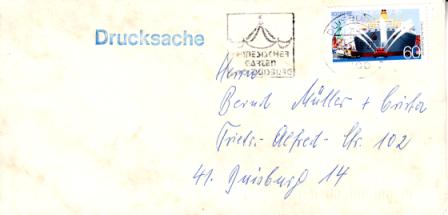 Drucksache
CHINESISCHER
GARTEN
DUISBURG
DUISBURG
60
Herrn
Bernd Müller + Crista
Frietr.-Alfred-Str. 102
41. Duisburg 14